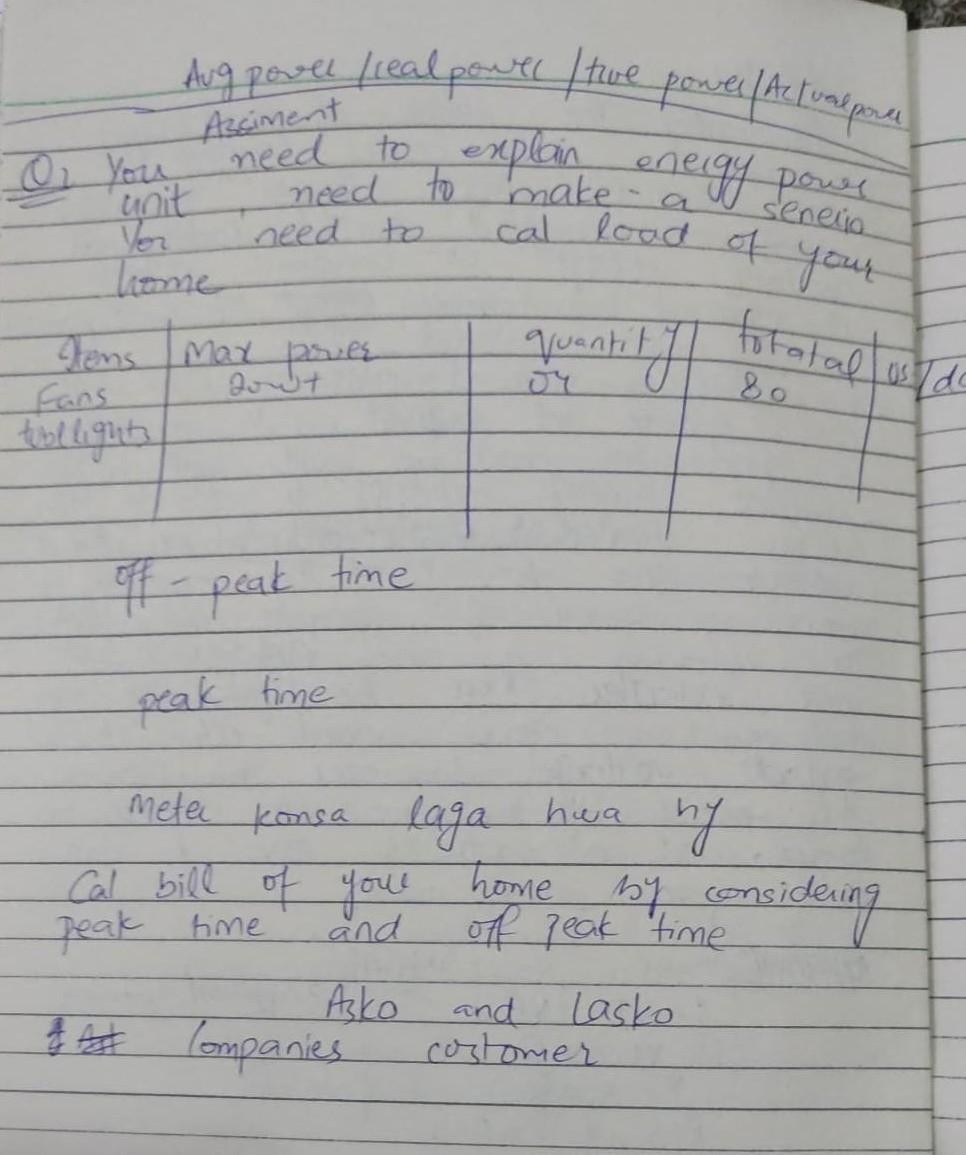 Avg power / real power / true power / Actual power
Assiment
Q1 You need to explain energy power
unit, need to make a senerio
You need to cal load of your
home
Items | Max power | quantity | tototal | us/dc
Fans 20wt 04 80
tubllights
off - peak time
peak time
Meter konsa laga hwa hy
Cal bill of your home by considering
peak time and off peak time
Asko and Lasko
Companies costomer